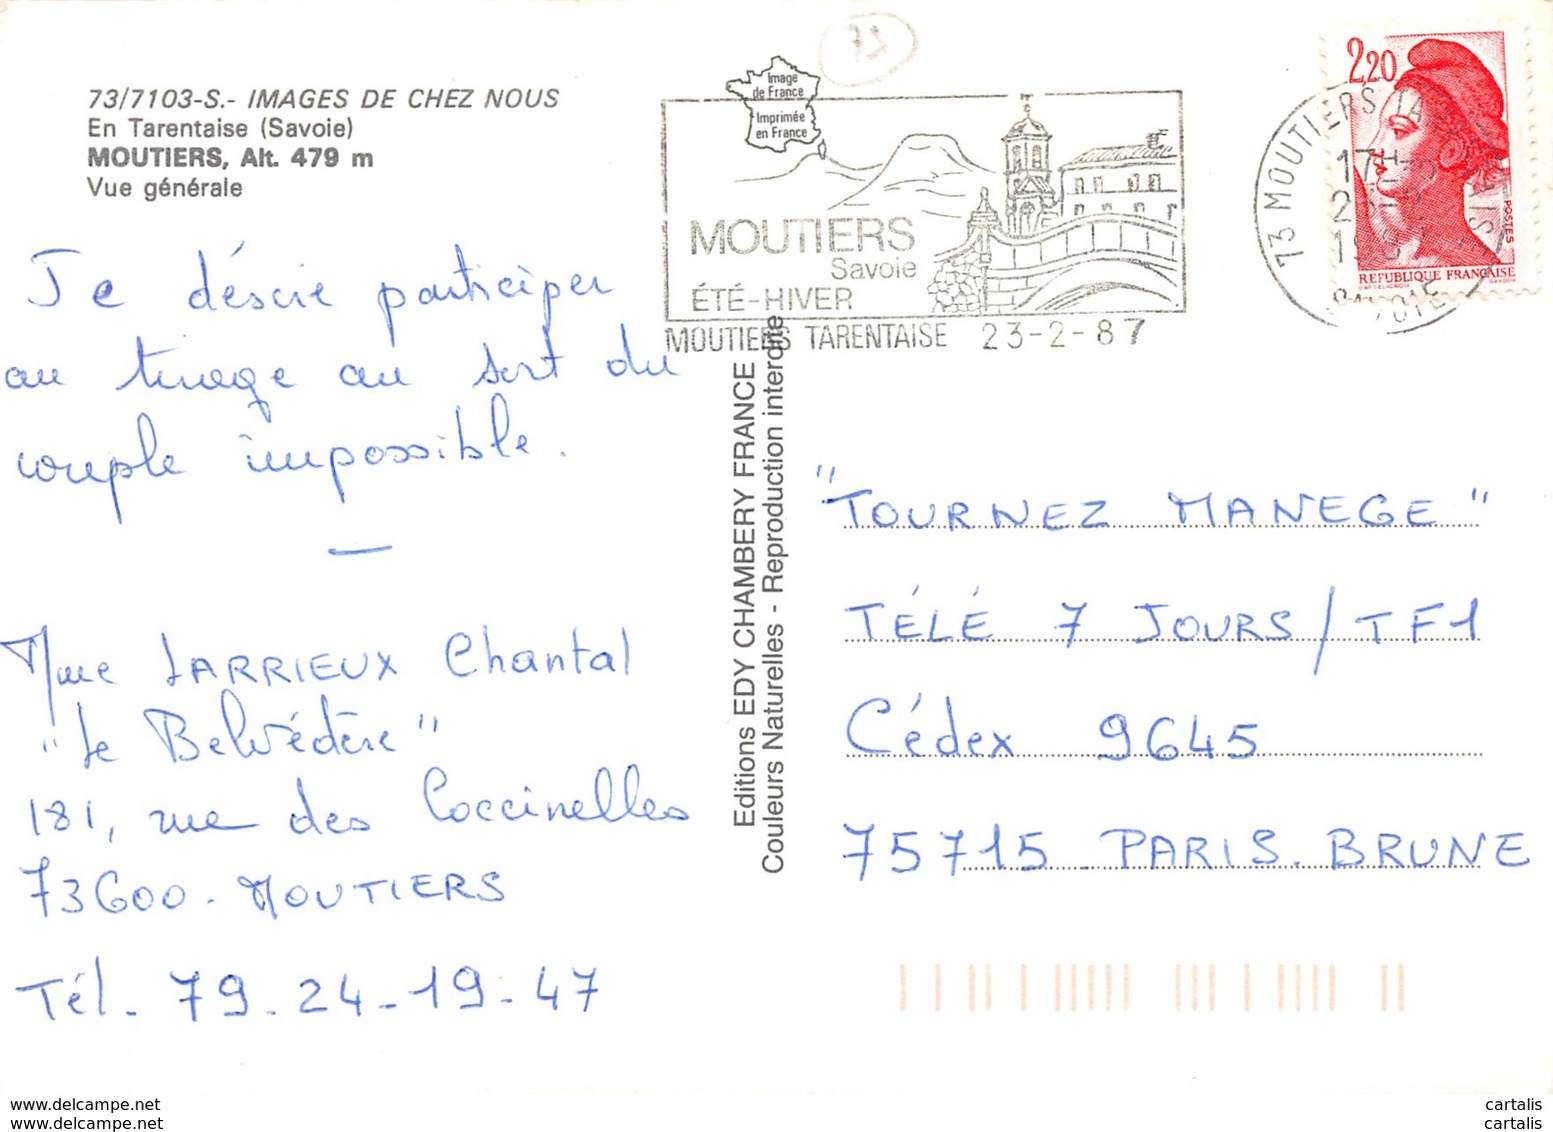 73/7103-S.- IMAGES DE CHEZ NOUS
En Tarentaise (Savoie)
MOUTIERS, Alt. 479 m
Vue générale
Je désire participer
au tirage au sort du
couple impossible.
—
Mme LARRIEUX Chantal
"Le Belvédère"
181, rue des Coccinelles
73600. MOUTIERS
Tél. 79.24.19.47
Editions EDY CHAMBERY FRANCE
Couleurs Naturelles - Reproduction interdite
73
Image
de France
Imprimée
en France
MOUTIERS
Savoie
ÉTÉ-HIVER
MOUTIERS TARENTAISE 23-2-87
73 MOUTIERS
17H
SAVOIE
2,20
POSTES
REPUBLIQUE FRANÇAISE
"TOURNEZ MANEGE"
TÉLÉ 7 JOURS/TF1
Cédex 9645
75715 PARIS.BRUNE
www.delcampe.net
www.delcampe.net
cartalis
cartalis